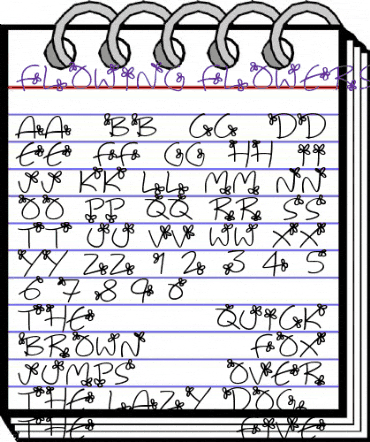 FLOWING FLOWERS
AA BB CC DD
EE FF GG HH II
JJ KK LL MM NN
OO PP QQ RR SS
TT UU VV WW XX
YY ZZ 1 2 3 4 5
6 7 8 9 0
THE QUICK
BROWN FOX
JUMPS OVER
THE LAZY DOG.
THE FIVE